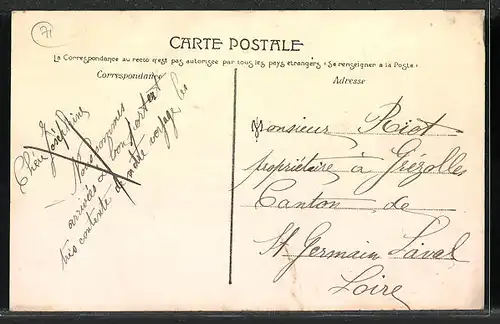 71
CARTE POSTALE
La Correspondance au recto n'est pas autorisée par tous les pays étrangers (Se renseigner à la Poste)
Correspondance
Adresse
Chère Joséphine
Nous sommes
arrivés à bon port et
très contente de notre voyage les
Monsieur Riot
propriétaire à Grézolles
Canton de
St Germain Laval
Loire